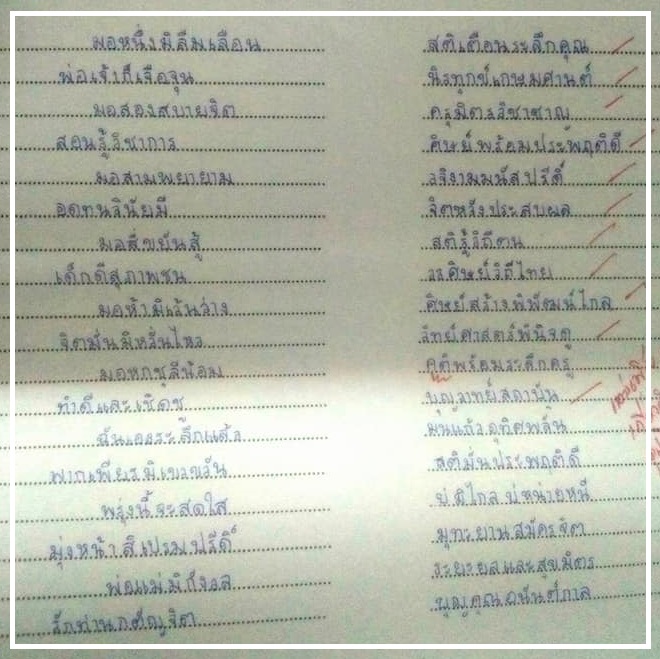 มอหนึ่งมิลืมเลือน สติเตือนระลึกคุณ
พ่อเจ้าก็เจือจุน นิรทุกข์เกษมศานต์
มอสองสบายจิต ครุมิตรวิชาชาญ
สอนรู้วิชาการ ศิษย์พร้อมประพฤติดี
มอสามพยายาม งามมนัสปรีดิ์
อดทนวินัยมี จิตหวังประสบผล
มอสี่ขยันสู้ สติรู้วิถีตน
เด็กดีสุภาพชน วรศิษย์วิถีไทย
มอห้ามิเว้นว่าง ศิษย์สร้างพิพัฒน์ไกล
จิตมั่นมิหวั่นไหว วิทย์ศาสตร์พินิจดู
มอหกชุลีน้อม คุติพร้อมระลึกครู
ทำดีและเชิดชู บุญวาทย์สถาบัน
ฉันเองระลึกแล้ว มั่นแก้วอุทิศพลัน
พากเพียรมิเขวขวัน สติมั่นประพฤติดี
พรุ่งนี้จะสดใส บ่หน่ายหนี
มุ่งหน้าสิเปรมปรีดิ์ มุทะยานสมัครจิต
พ่อแม่มิกังวล ระยะยลและสุขมิตร
รักท่านกตัญญุจิต บุญคุณอนันต์กาล